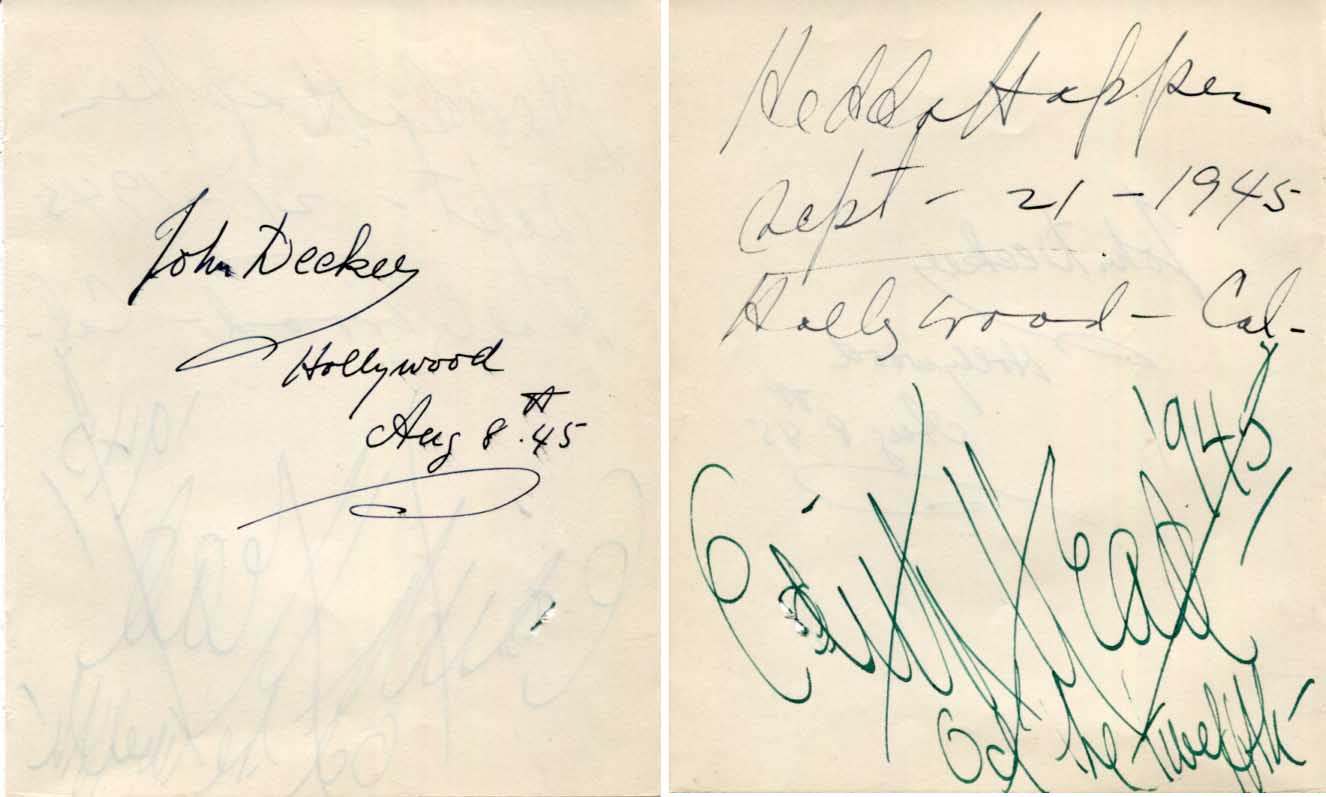 John Decker
Hollywood
Aug 8th. 45
Hedda Hopper
Sept - 21 - 1945
Hollywood - Cal -
Edith Head 1945
Oct the twelfth